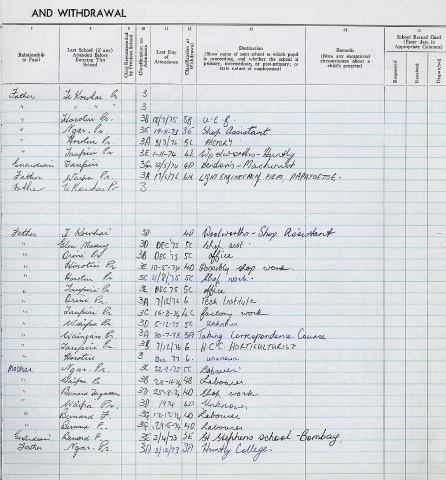 AND WITHDRAWAL
7 8 9 10 11 12 13 14 15
Relationship to Pupil
Last School (if any) Attended Before Entering This School
Class Recommended by Previous School
Classification on Admission
Last Day of Attendance
Classification at Withdrawal
Destination
(Show name of next school to which pupil is proceeding, and whether the school is primary, intermediate, or post-primary; or state nature of employment)
Remarks
(Note any exceptional circumstances about a child's progress)
School Record Card
(Enter date in Appropriate Column)
Requested
Received
Despatched
Father Te Kowhai Pr 3
" " " " 3
" Horotiu Pr. 3B 5B
" Ngar. Pr. 3E 19-11-73 3E Shop Assistant
" Horotiu Pr. 3A 3/3/76 5C FACTORY
" Taupiri Pr 3E 1-11-74 4E Woolworths - Huntly
Guardian Taupiri 4D Machinist
Father Waipa Pr. 3A 4H LIGHT ENGINEERING FIRM, PAPATOETOE.
Father Te Kowhai Pr 3
Father T. Kowhai 3D 4D Woolworths - Shop Assistant
" Glen Massey 3D DEC 75 5C Shop asst.
" Orini Pr 3B DEC 75 5C office
" Horotiu Pr 3E 10-5-74 4D Possibly shop work
" Horotiu Pr 3C 11/8/75 5C Shop work.
" Taupiri Pr 3E DEC 75 5C office
" Orini Pr 3A 7/12/76 6 Tech Institute
" Taupiri Pr 3C factory work
" Waipa Pr 3D 5-12-75 5C unknown
" Waingaro Pr 3A 30-7-73 3A Taking Correspondence Course
" Taupiri Pr 3B 7/12/76 6 HORTICULTURIST
" Horotiu 3 Dec 77 6 unknown
Mother Ngar. Pr. 3C 5C Labourer
" Waipa Pr 3B 4B Labourer
" Bernard Ferguson 3D 25-8-74 4D Shop work
" Waipa Pr. 3D 1974 4D Unknown
" Bernard F. 3G 12-12-74 4D Labourer
" Bernard F. 3G 4D Labourer
Guardian Bernard F. 3E 2/4/73 3E St Stephens school - Bombay.
Father Ngar. Pr. 3A 3/12/73 3A Huntly College.